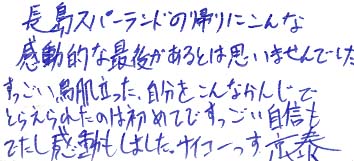 長島スパーランドの帰りにこんな
感動的な最後があるとは思いませんでした
すっごい鳥肌立った、自分をこんなかんじで
とらえられたのは初めてですっごい自信も
でたし感動もしました。サイコーっす